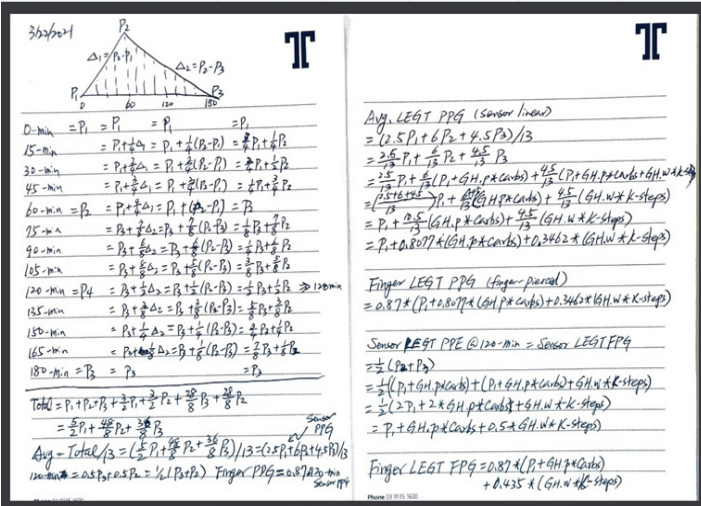 3/22/2021
P2
Δ1=P2-P1
Δ2=P2-P3
P1
P3
0 60 120 180
0-min = P1 = P1 = P1 = P1
15-min = P1+1/4Δ1 = P1+1/4(P2-P1) = 3/4P1+1/4P2
30-min = P1+2/4Δ1 = P1+2/4(P2-P1) = 2/4P1+
45-min = P1+3/4Δ1 = P1+3/4(P2-P1) = 1/4P1+3/4P2
60-min = P2 = P1+4/4Δ1 = P1+ = P2
75-min = P3+7/8Δ2 = P3+7/8(P2-P3) = 1/8P3+7/8P2
90-min = P3+6/8Δ2 = P3+6/8(P2-P3) =
105-min = P3+5/8Δ2 = P3+5/8(P2-P3) = 3/8P3+5/8P2
120-min = P4 = P3+1/2Δ2 = P3+1/2(P2-P3) = 1/2P3+1/2P2 ⇒ 120min
135-min = P3+3/8Δ2 = P3+3/8(P2-P3) = 5/8P3+3/8P2
150-min = P3+1/4Δ2 = P3+1/4(P2-P3) =
165-min = P3+1/8Δ2 = P3+1/8(P2-P3) = 7/8P3+1/8P2
180-min = P3 = P3 = P3
Total = P1+P2+P3+3/2P1+3/2P2+28/8P3+28/8P2
= 5/2P1+48/8P2+36/8P3
Sensor PPG
Avg = Total/13 = (5/2P1+48/8P2+36/8P3)/13 = (2.5P1+6P2+4.5P3)/13
120-min = 0.5P3+0.5P2 = 1/2(P3+P2) Finger PPG = 0.87*120-min
Sensor PPG
Avg. LEGT PPG (sensor linear)
= (2.5P1+6P2+4.5P3)/13
= 2.5/13 P1 + 6/13 P2 + 4.5/13 P3
= 2.5/13 P1 + 6/13 (P1+GH.p*carbs) + 4.5/13 (P1+GH.p*carbs+GH.w*k-steps)
= (2.5+6+4.5/13) P1 + (GH.p*carbs) + 4.5/13 (GH.w*k-steps)
= P1 + 10.5/13 (GH.p*carbs) + 4.5/13 (GH.w*k-steps)
= P1+0.8077*(GH.p*carbs)+0.3462*(GH.w*k-steps)
Finger LEGT PPG (finger-pierced)
= 0.87*(P1+0.8077*(GH.p*carbs)+0.3462*(GH.w*k-steps)
Sensor LEGT PPE @120-min = Sensor LEGT FPG
= 1/2(P2+P3)
= 1/2((P1+GH.p*carbs)+(P1+GH.p*carbs)+GH.w*k-steps)
= 1/2(2P1+2*GH.p*carbs+GH.w*k-steps)
= P1+GH.p*carbs+0.5*GH.w*k-steps)
Finger LEGT FPG = 0.87*(P1+GH.p*carbs)
+0.435*(GH.w*k-steps)
Phone 03 9135 1600